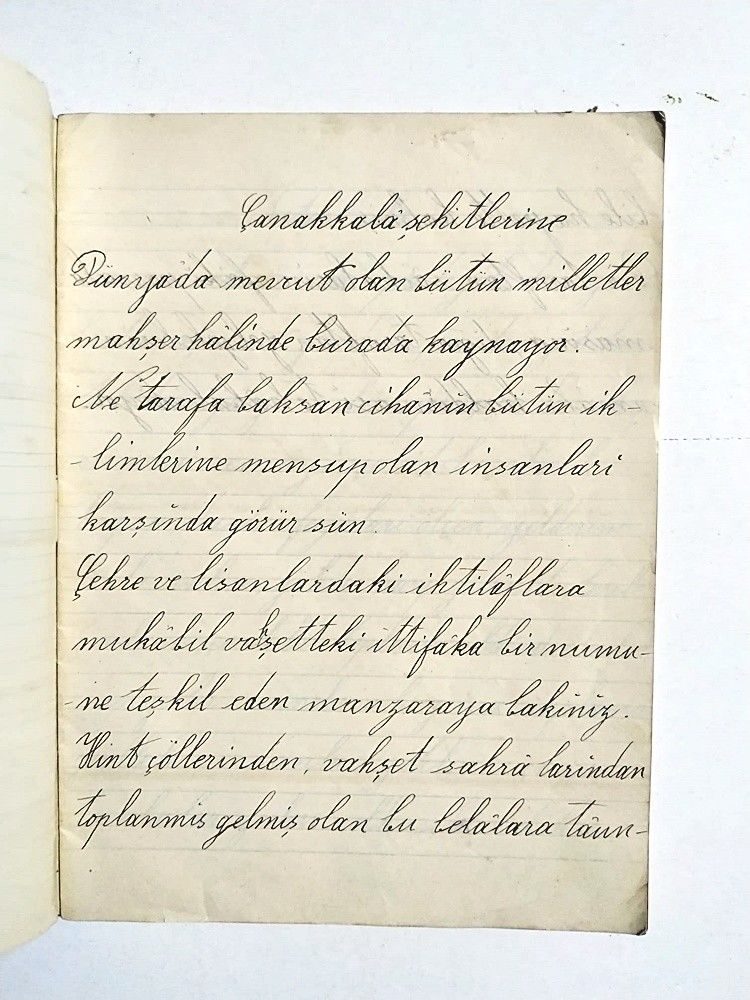 Çanakkalâ şehitlerine
Dünyada mevcut olan bütün milletler
mahşer hâlinde burada kaynayor.
Ne tarafa baksan cihânin bütün ik-
-limlerine mensup olan insanlari
karşında görür sün.
Çehre ve lisanlardaki ihtilâflara
mukâbil vahşetteki ittifâka bir numu-
-ne teşkil eden manzaraya bakiniz.
Hint çöllerinden, vahşet sahrâ larindan
toplanmis gelmiş olan bu belâlara tâun-